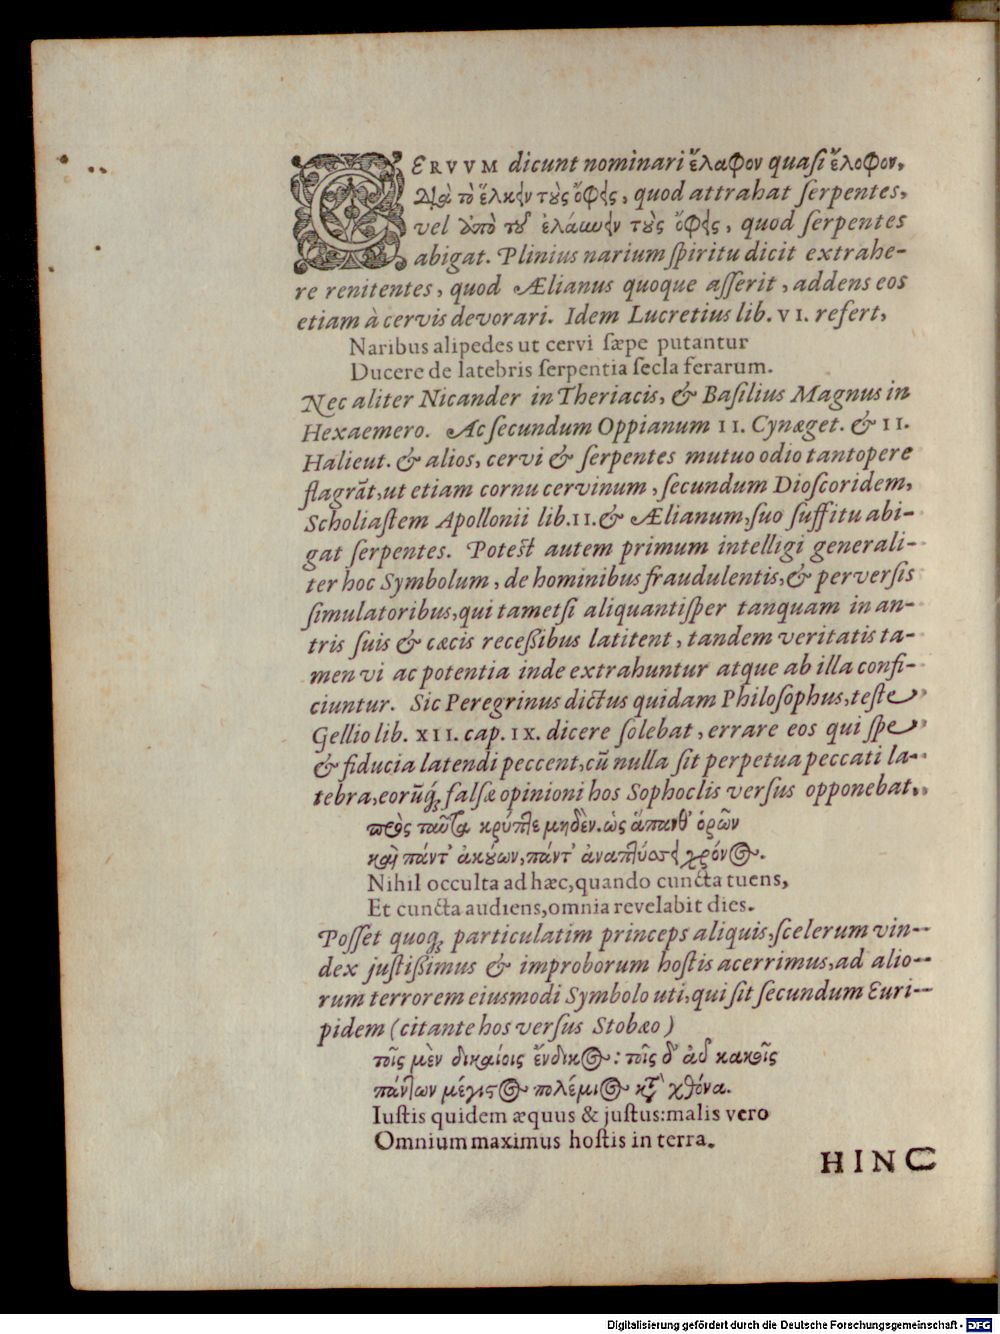 CERVVM dicunt nominari ἔλαφον quaſi ἔλοφον,
Διὰ τὸ ἕλκειν τοὺς ὄφεις, quod attrahat ſerpentes,
vel ἀπὸ τοῦ ἐλάειν τοὺς ὄφεις, quod ſerpentes
abigat. Plinius narium ſpiritu dicit extrahe-
re renitentes, quod Ælianus quoque aſſerit, addens eos
etiam à cervis devorari. Idem Lucretius lib. VI. refert,
Naribus alipedes ut cervi ſæpe putantur
Ducere de latebris ſerpentia ſecla ferarum.
Nec aliter Nicander in Theriacis, & Baſilius Magnus in
Hexaemero. Ac ſecundum Oppianum II. Cynæget. & II.
Halieut. & alios, cervi & ſerpentes mutuo odio tantopere
flagrãt, ut etiam cornu cervinum, ſecundum Dioſcoridem,
Scholiaſtem Apollonii lib. II. & Ælianum, ſuo ſuffitu abi-
gat ſerpentes. Poteſt autem primum intelligi generali-
ter hoc Symbolum, de hominibus fraudulentis, & perverſis
ſimulatoribus, qui tametſi aliquantiſper tanquam in an-
tris ſuis & cæcis receßibus latitent, tandem veritatis ta-
men vi ac potentia inde extrahuntur atque ab illa confi-
ciuntur. Sic Peregrinus dictus quidam Philoſophus, teſte
Gellio lib. XII. cap. IX. dicere ſolebat, errare eos qui ſpe
& fiducia latendi peccent, cũ nulla ſit perpetua peccati la-
tebra, eorũq́; falſæ opinioni hos Sophoclis verſus opponebat,
πρὸς ταῦτα κρύπτε μηδὲν. ὡς ἅπανθ' ὁρῶν
καὶ πάντ' ἀκούων, πάντ' ἀναπτύσσει χρόνος.
Nihil occulta ad hæc, quando cuncta tuens,
Et cuncta audiens, omnia revelabit dies.
Poſſet quoq; particulatim princeps aliquis, ſcelerum vin-
dex juſtißimus & improborum hoſtis acerrimus, ad alio-
rum terrorem eiusmodi Symbolo uti, qui ſit ſecundum Euri-
pidem (citante hos verſus Stobæo)
τοῖς μὲν δικαίοις ἔνδικος: τοῖς δ' αὖ κακοῖς
πάντων μέγιστος πολέμιος κατὰ χθόνα.
Iuſtis quidem æquus & juſtus: malis vero
Omnium maximus hoſtis in terra.
HINC
Digitalisierung gefördert durch die Deutsche Forschungsgemeinschaft - DFG